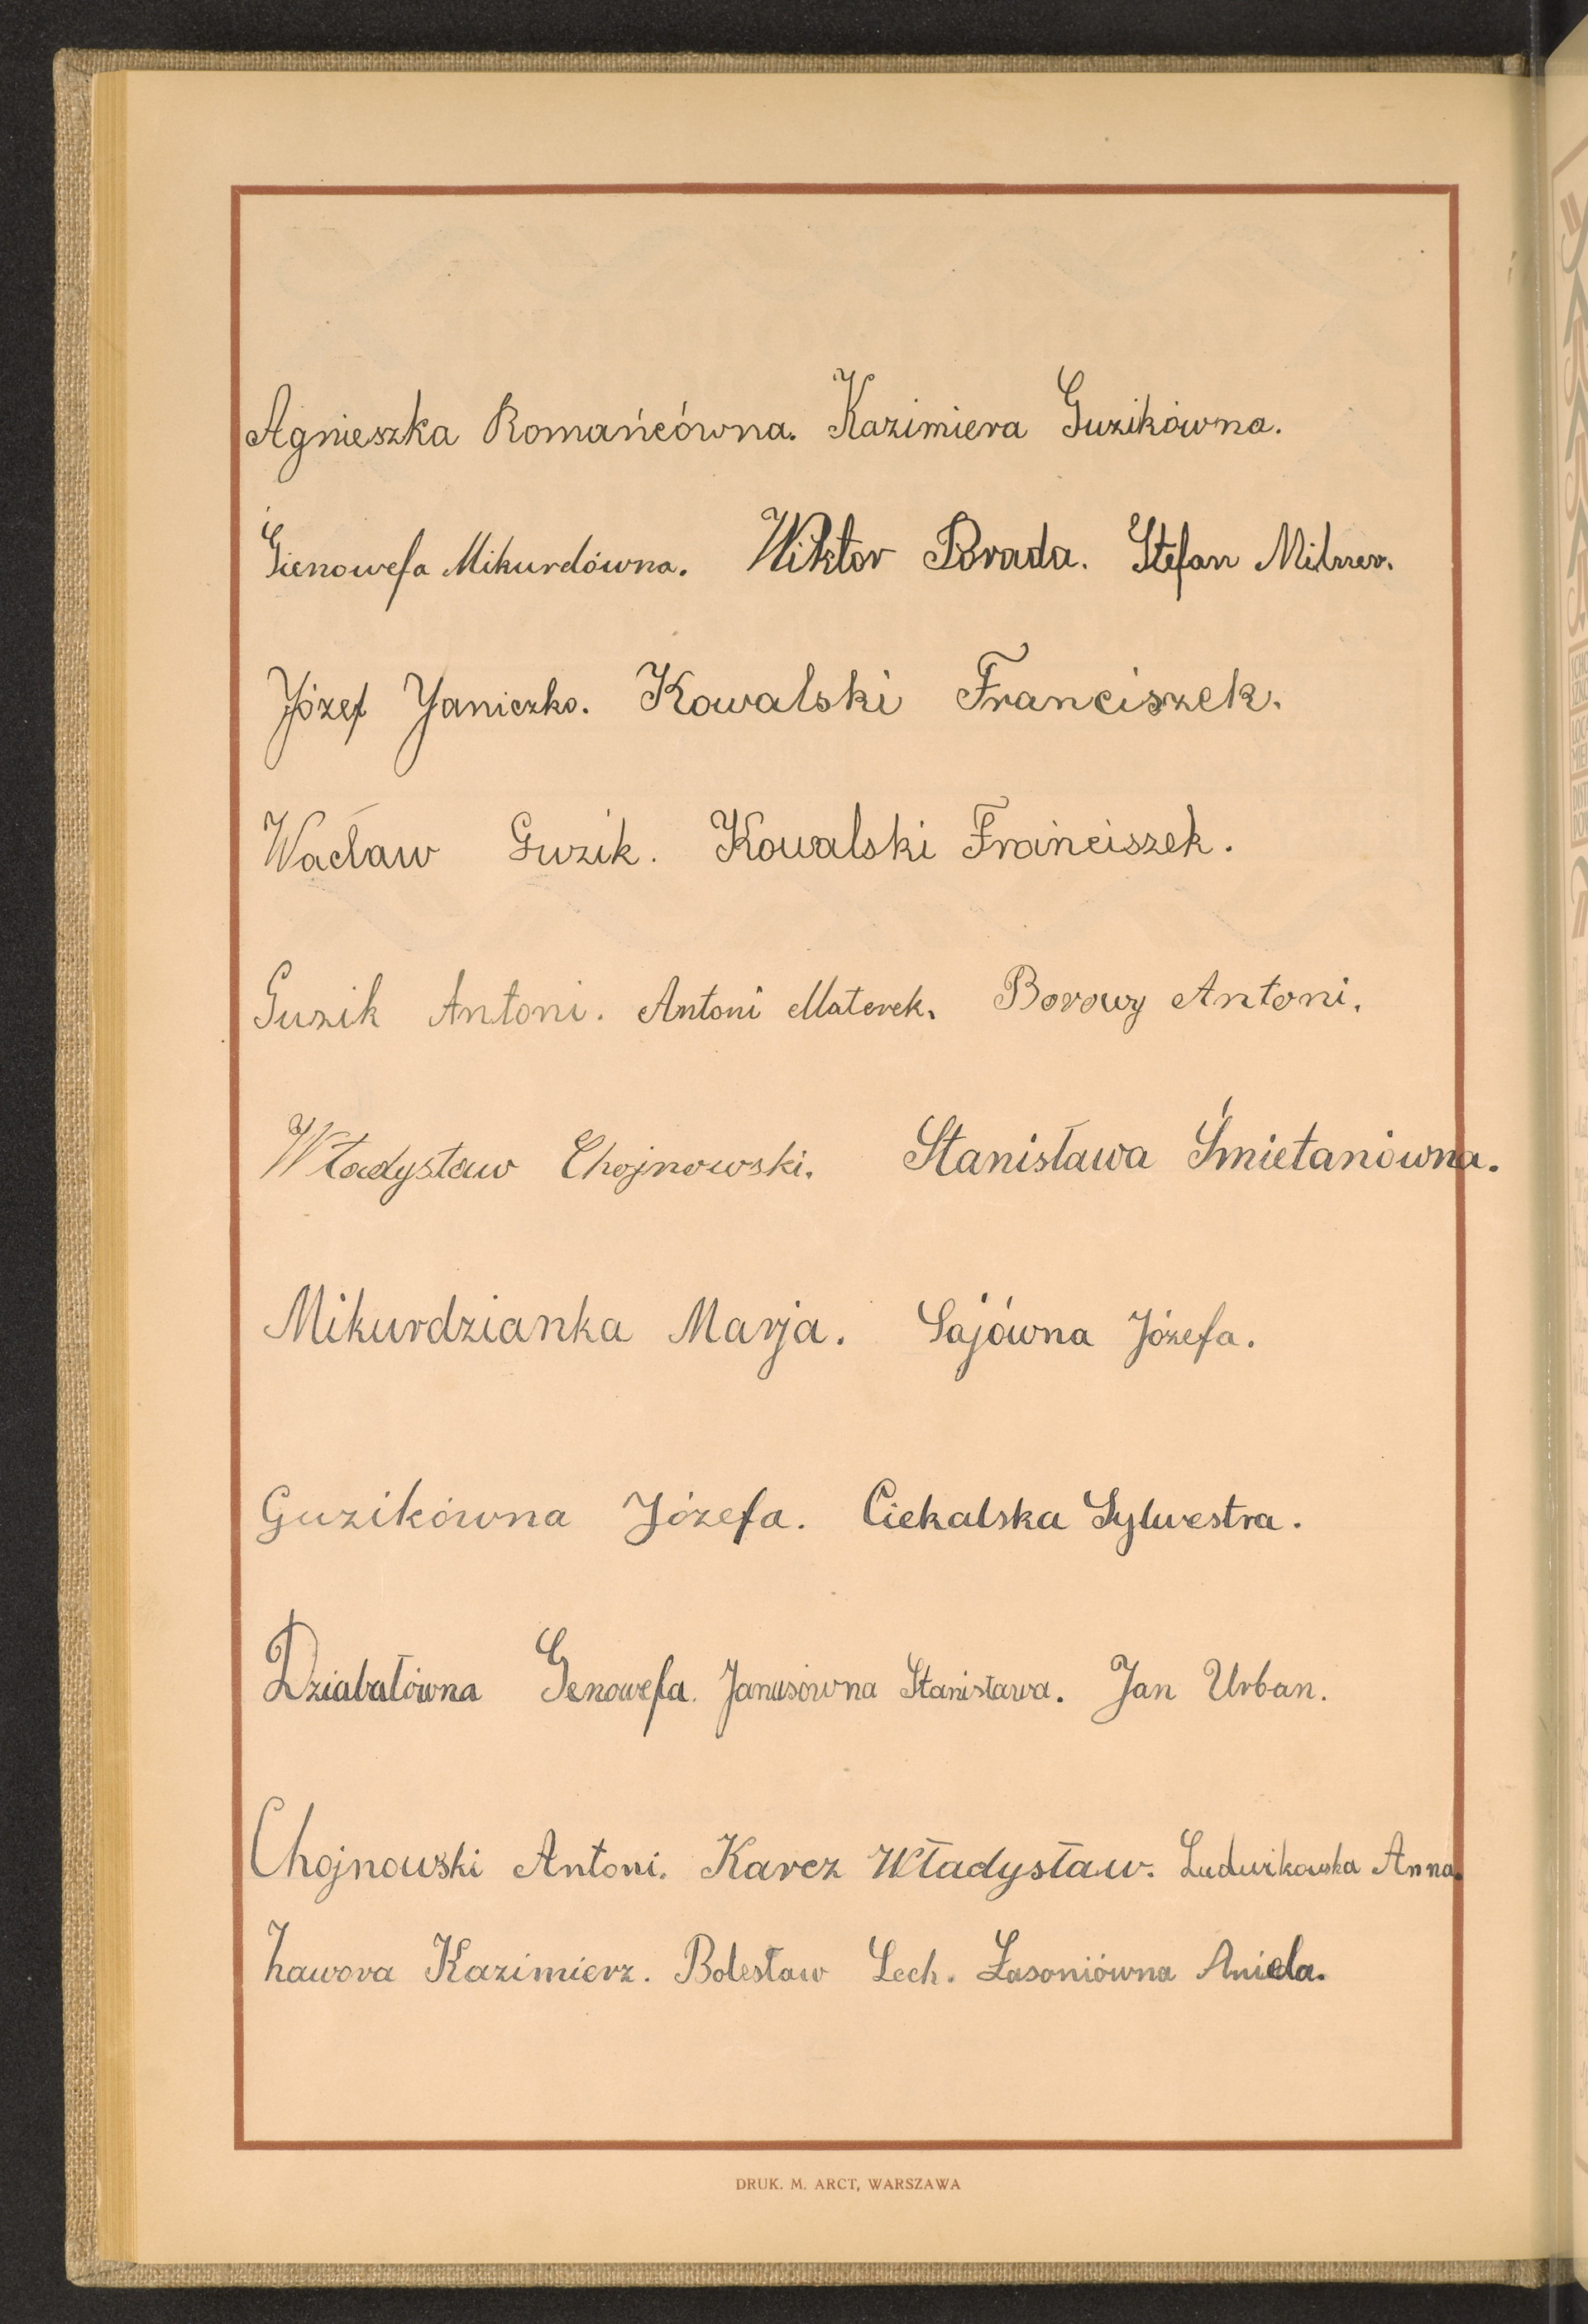 Agnieszka Romańcówna. Kazimiera Guzikówna.
Gienowefa Mikurdówna. Wiktor Porada. Stefan Milner.
Józef Janiczko. Kowalski Franciszek.
Wacław Guzik. Kowalski Franciszek.
Guzik Antoni. Antoni Materek. Borowy Antoni.
Władysław Chojnowski. Stanisława Śmietanówna.
Mikurdzianka Marja. Sajówna Józefa.
Guzikówna Józefa. Ciekalska Sylwestra.
Dziabałówna Genowefa. Janusówna Stanisława. Jan Urban.
Chojnowski Antoni. Karcz Władysław. Ludwikowska Anna.
Kazimierz. Bolesław Lech. Lasoniówna Aniela.
DRUK. M. ARCT, WARSZAWA